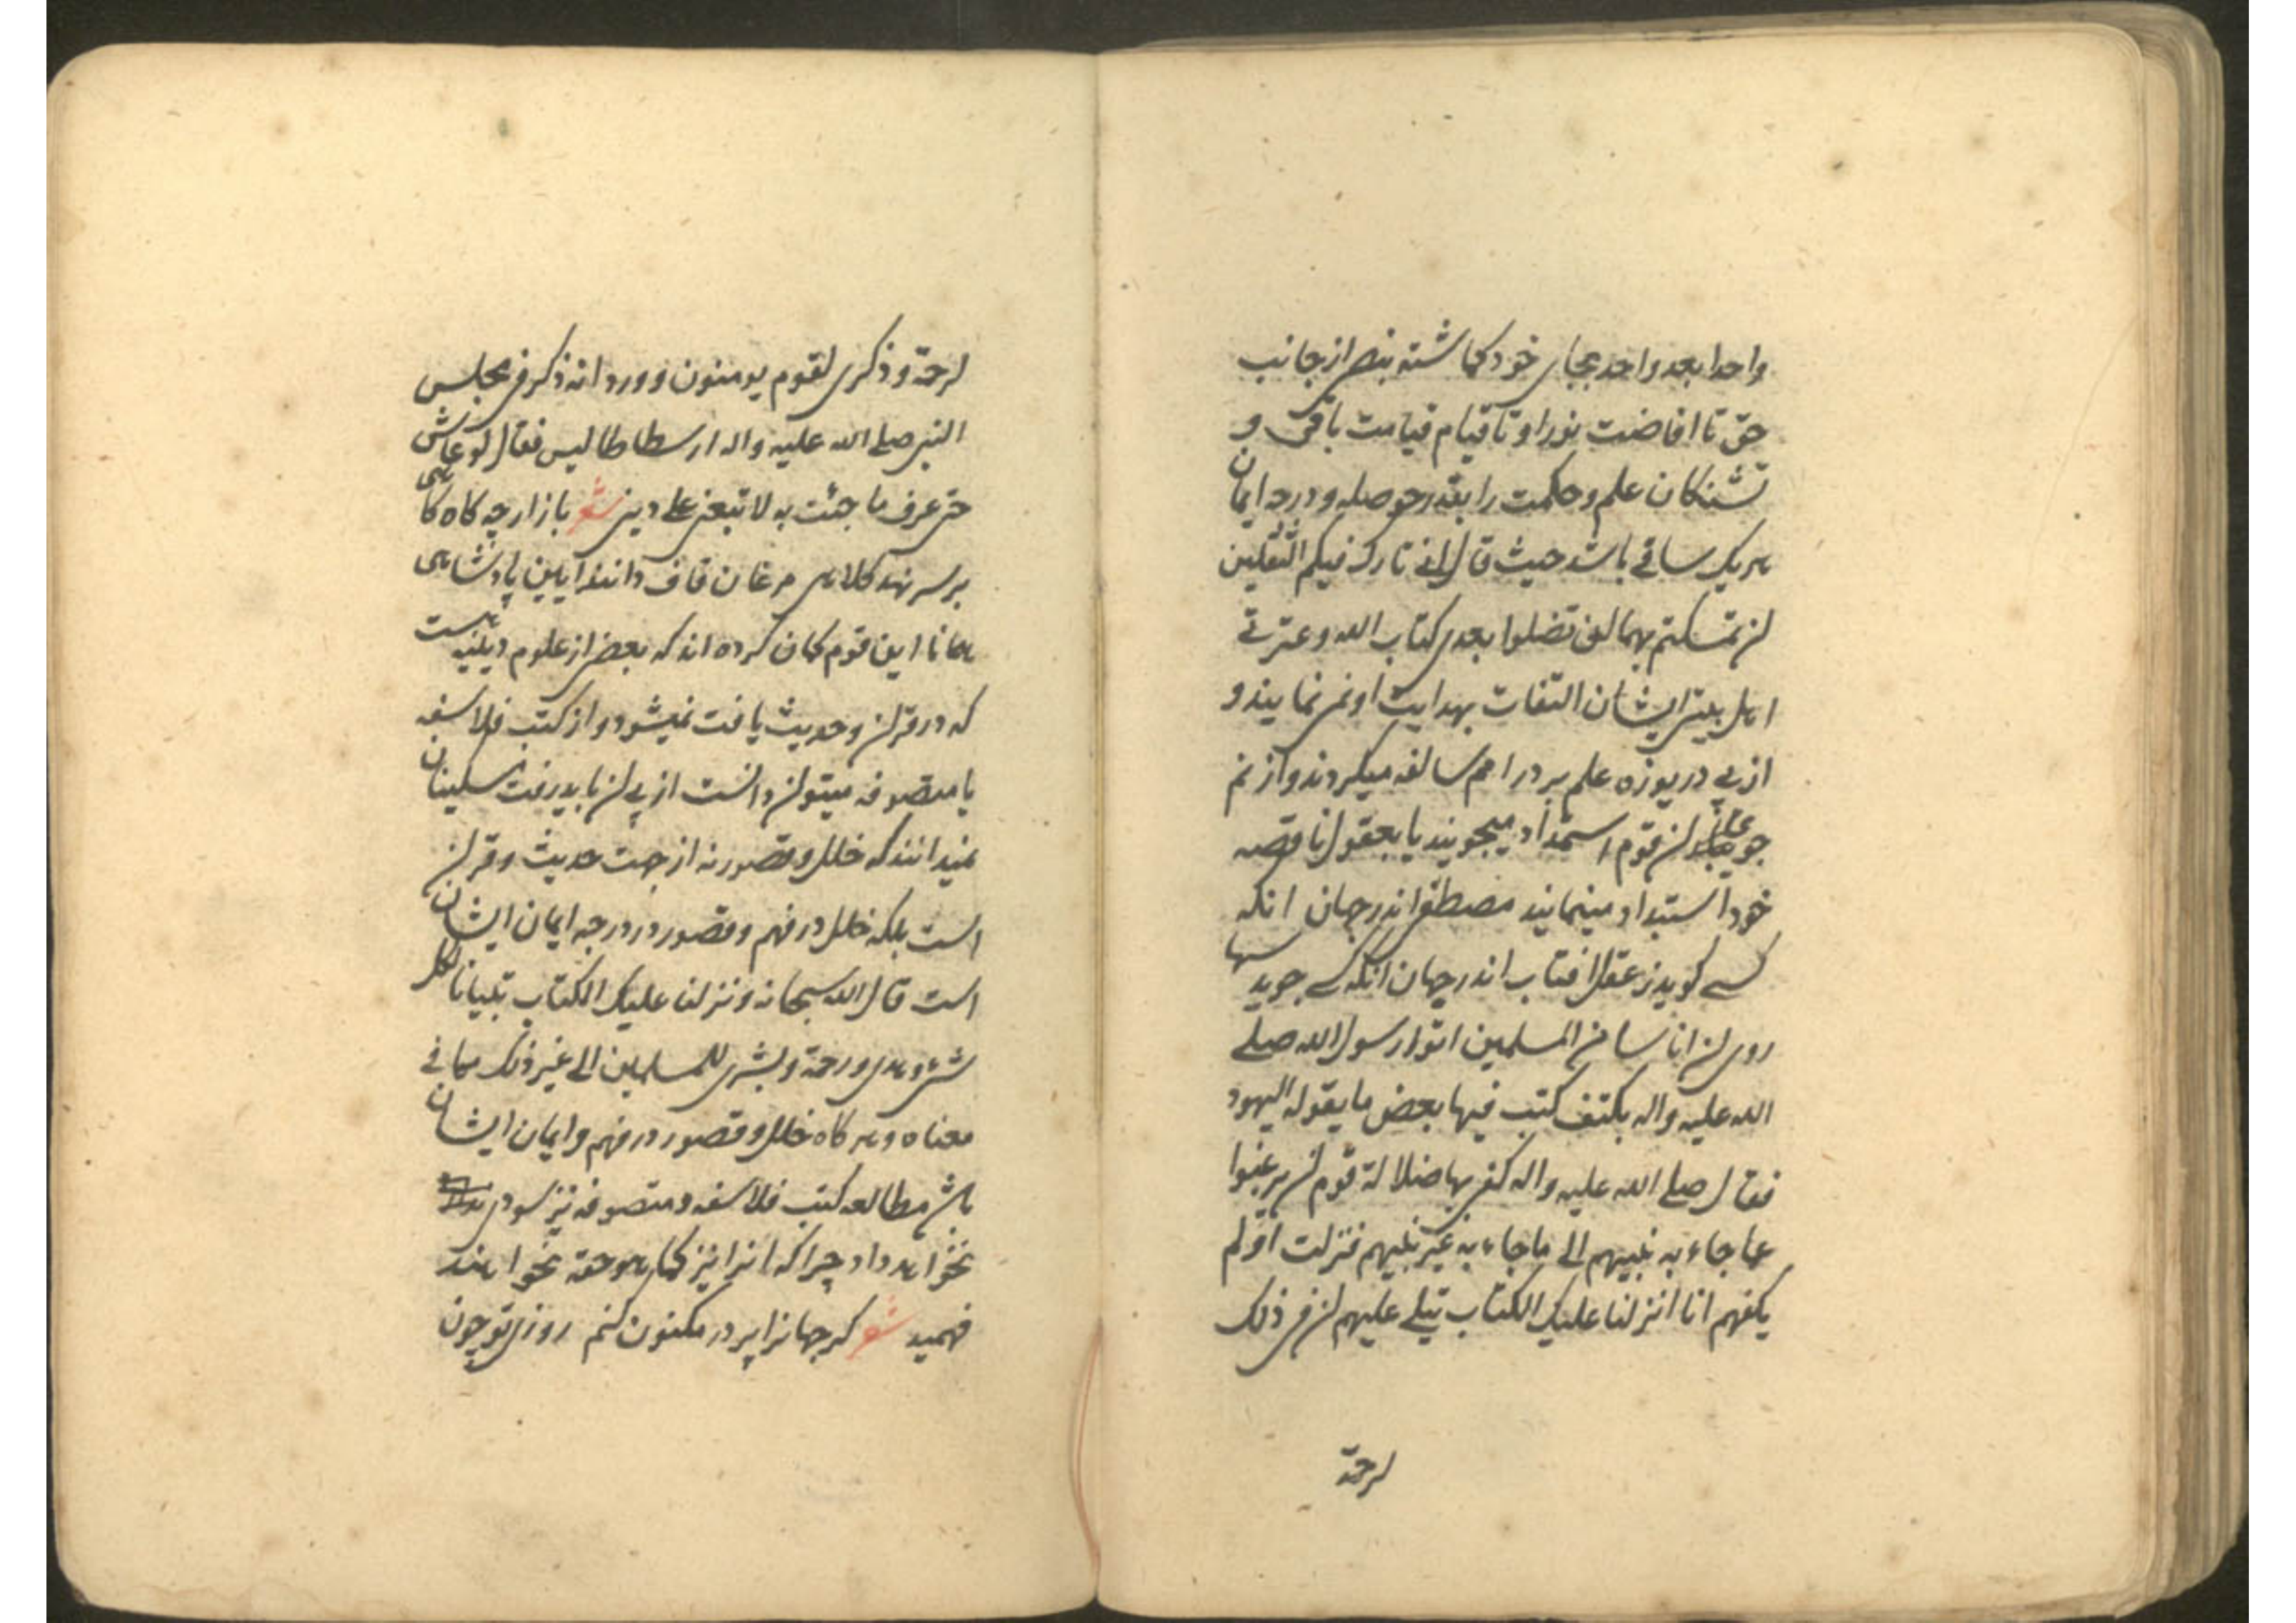 واحدا بعد واحد بجای خود کماشته بنص از جانب
حق تا افاضت نور او تا قیام قیامت باقی و
تشنکان علم و حکمت را بقدر حوصله و درجه ایمان
هریک ساقی باشد حیث قال انی تارک فیکم الثقلین
ان تمسکتم بهما لن تضلوا بعدی کتاب الله و عترتی
اهل بیتی ایشان التفات بهدایت او نمی نمایند و
از پی دریوزه علم بر در امم سالفه میکردند و از نم
جوی ان قوم استمداد میجویند یا بعقول ناقصه
خود استبداد مینمایند مصطفی اندر جهان انکه
کسی کوید ز عقل افتاب اندر جهان انکه کسی جوید سها
روی ان اناسا من المسلمین اتوا رسول الله صلی
الله علیه واله بکتف کتب فیها بعض ما یقوله الیهود
فقال صلی الله علیه واله کفی بها ضلالة قوم ان یرغبوا
عما جاء به نبیهم الی ما جاء به غیر نبیهم فنزلت اولم
یکفهم انا انزلنا علیک الکتاب یتلی علیهم ان فی ذلک
لرحمة
لرحمة و ذکری لقوم یومنون و ورد انه ذکر فی مجلس
النبی صلی الله علیه واله ارسطاطالیس فقال لو عاش
حتی عرف ما جئت به لاتبعنی علی دینی شعر با زارچه کاه کاهی
بر سر نهد کلاهی مرغان قاف دانند ایین پادشاهی
همانا این قوم کمان کرده اند که بعضی از علوم دینیه هست
که در قران و حدیث یافت نمیشود و از کتب فلاسفه
یا متصوفه میتوان دانست از پی ان باید رفت مسکینان
نمیدانند که خلل و قصور نه از جهت حدیث و قران
است بلکه خلل در فهم و قصور در درجه ایمان ایشان
است قال الله سبحانه و نزلنا علیک الکتاب تبیانا لکل
شیء و هدی و رحمة و بشری للمسلمین الی غیر ذلک مما فی
معناه و هر کاه خلل و قصور در فهم و ایمان ایشان
باشد مطالعه کتب فلاسفه و متصوفه نیز سودی
نخواهد داد چرا که انرا نیز کما هو حقه نخواهند
فهمید شعر کر جهانرا پر در مکنون کنم روزی تو چون